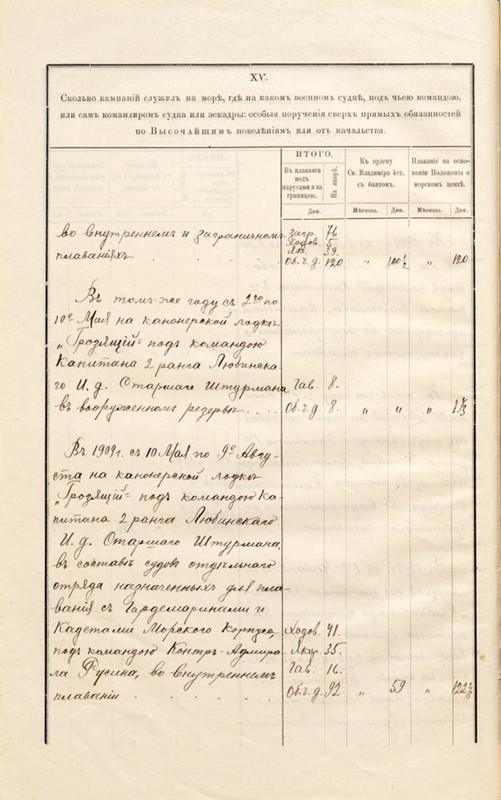 XV.
Сколько кампаній служилъ на морѣ, гдѣ на какомъ военномъ суднѣ, подъ чьею командою,
или самъ командиромъ судна или эскадры: особыя порученія сверхъ прямыхъ обязанностей
по Высочайшимъ повелѣніямъ или отъ начальства.
ИТОГО.
Въ плаваніи подъ парусами и за границею.
На якорѣ.
Къ ордену Св. Владиміра 4 ст. съ бантомъ.
Плаваніе на основаніи Положенія о морскомъ цензѣ.
Дни.
Мѣсяцы.
Дни.
Мѣсяцы.
Дни.
во внутреннемъ и заграничномъ загр. 76
Ходов. 5
плаваніяхъ . . . . Як. 39.
Об. ч. д. 120 „ „ 120
Въ томъ-же году съ 2го по
10е Мая на канонерской лодкѣ
„Грозящій“ подъ командою
Капитана 2 ранга Любинска-
го И. д. Старшаго Штурмана Гав. 8.
въ вооруженномъ резервѣ . . . . Об. ч. д. 8. „ „ „
Въ 1909 г. съ 10 Мая по 9е Авгу-
ста на канонерской лодкѣ
„Грозящій“ подъ командою Ка-
питана 2 ранга Любинскаго
И. д. Старшаго Штурмана,
въ составѣ судовъ отдѣльнаго
отряда назначенныхъ для пла-
ванія съ Гардемаринами и
Кадетами Морского Корпуса, Ходов. 41.
подъ командою Контръ-Адмира- Якор. 35.
ла Русина, во внутреннемъ Гав. 16.
плаваніи . . . . . Об. ч. д. 92 „ 59 „